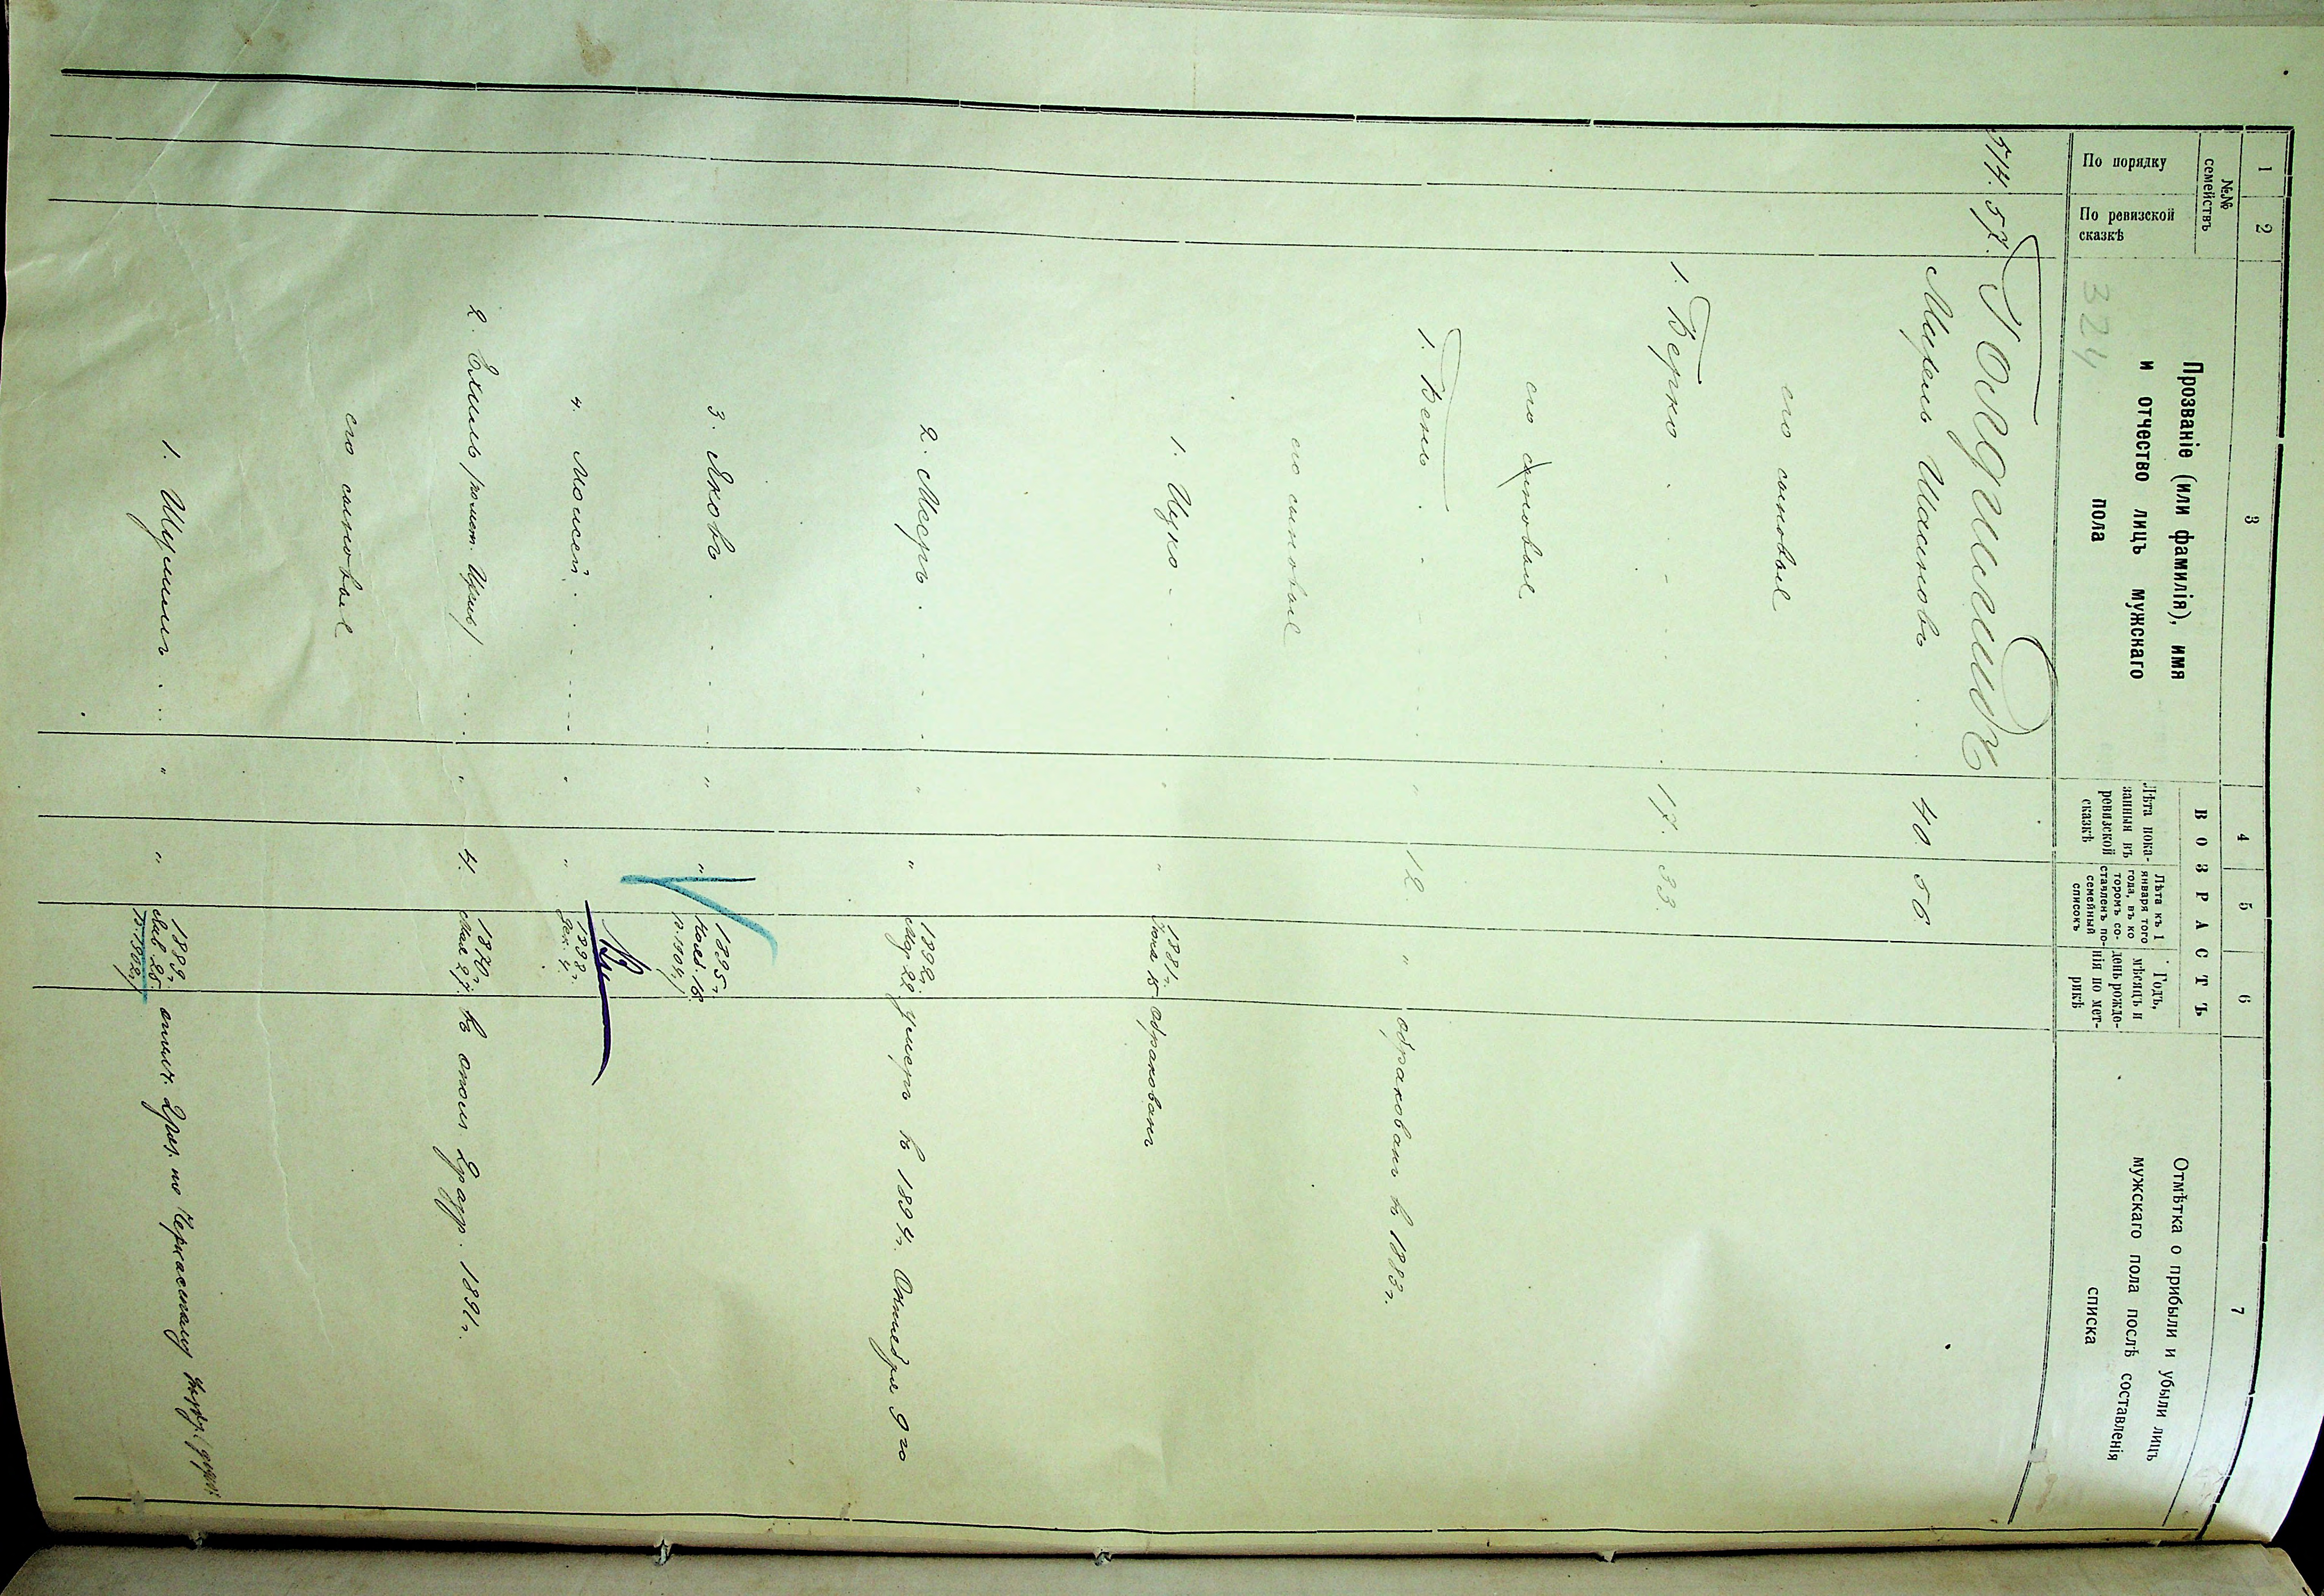 1 2 3 4 5 6 7
№№ семействъ
По порядку
По ревизской сказкѣ
Прозваніе (или фамилія), имя
и отчество лицъ мужскаго
пола
ВОЗРАСТЪ
Лѣта пока-
занныя въ
ревизской
сказкѣ
Лѣта къ 1
января того
года, въ ко
торомъ со-
ставленъ по-
семейный
списокъ
Годъ,
мѣсяцъ и
день рожде-
нія по мет-
рикѣ
Отмѣтка о прибыли и убыли лицъ
мужскаго пола послѣ составленія
списка
324
514. 57.
Мирель 40. 56.
его сыновья
1. Берко 17. 33.
его сыновья
1. Бень " 12 " обракованъ въ 1883 г.
его сыновья
1. Ицко " " 1881 г. Іюня 15 обракованъ
2. Мееръ " " 1892 г. Мар. 22 умеръ въ 1894 г. Октября 9 го
3. Яковъ " " 1895 г. Нояб. 18.
4. Моисей " " 1898 г. Дек. 4.
2. Ехиль " 4. 1870 г. Мая 27. въ 1891 г.
его сыновья
1. " " 1889 г. 25. по Черкасскому